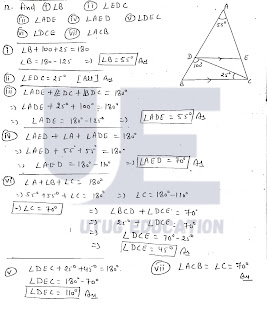 12. Find (i) ∠B (ii) ∠EDC
(iii) ∠ADE (iv) ∠AED (v) ∠DEC
(vi) ∠DCE (vii) ∠ACB
A
55°
D
E
100°
25°
B
C
(i) ∠B + 100 + 25 = 180
∠B = 180 - 125 => ∠B = 55° Ans
(ii) ∠EDC = 25° [AIA] Ans
(iii) ∠ADE + ∠EDC + ∠BDC = 180°
=> ∠ADE + 25° + 100° = 180°
=> ∠ADE = 180° - 125° => ∠ADE = 55° Ans
(iv) ∠AED + ∠A + ∠ADE = 180°
=> ∠AED + 55° + 55° = 180°
=> ∠AED = 180° - 110° => ∠AED = 70° Ans
(vi) ∠A + ∠B + ∠C = 180°
=> 55° + 55° + ∠C = 180° => ∠C = 180° - 110°
=> ∠C = 70° => ∠BCD + ∠DCE = 70°
=> 25° + ∠DCE = 70°
=> ∠DCE = 70° - 25°
=> ∠DCE = 45° Ans
UTUG EDUCATION
(v) ∠DEC + 25° + 45° = 180°
∠DEC = 180° - 70°
∠DEC = 110° Ans
(vii) ∠ACB = ∠C = 70° Ans